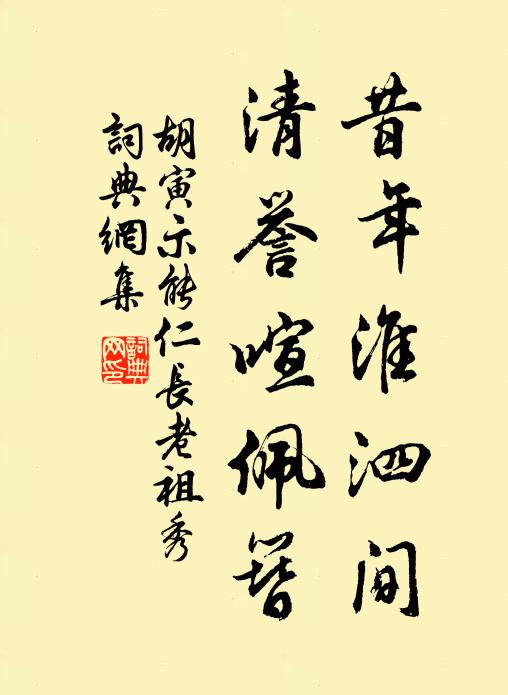 昔年淮泗间
清誉喧佩簪
胡寅示能仁長老祖秀
詞典網集
詞典网印